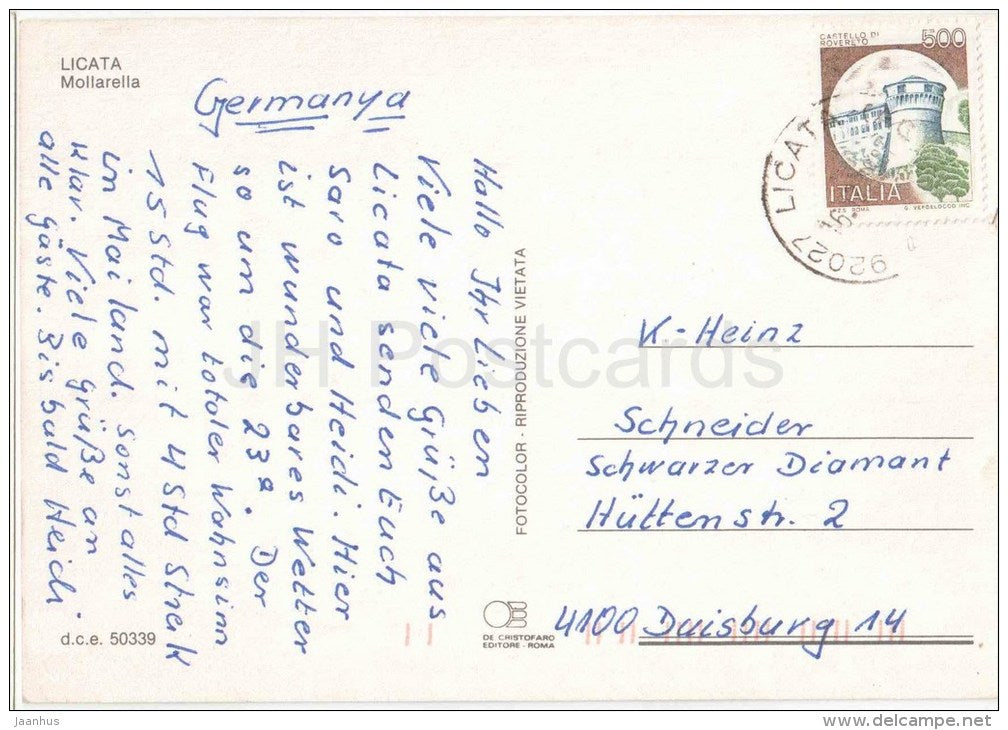 LICATA
Mollarella
Germanya
Hallo Ihr Lieben
Viele viele Grüße aus
Licata senden Euch
Saro und Heidi. Hier
ist wunderbares Wetter
so um die 23º. Der
Flug war totaler Wahnsinn
15 Std. mit 4 Std Streik
in Mailand. Sonst alles
klar. Viele Grüße an
alle Gäste. Bis bald Heidi.
d.c.e. 50339
FOTOCOLOR - RIPRODUZIONE VIETATA
DE CRISTOFARO
EDITORE - ROMA
CASTELLO DI
ROVERETO
500
ITALIA
92027 LICATA
K-Heinz
Schneider
Schwarzer Diamant
Hüttenstr. 2
4100 Duisburg 14
JH Postcards
jaanhus
www.delcampe.net